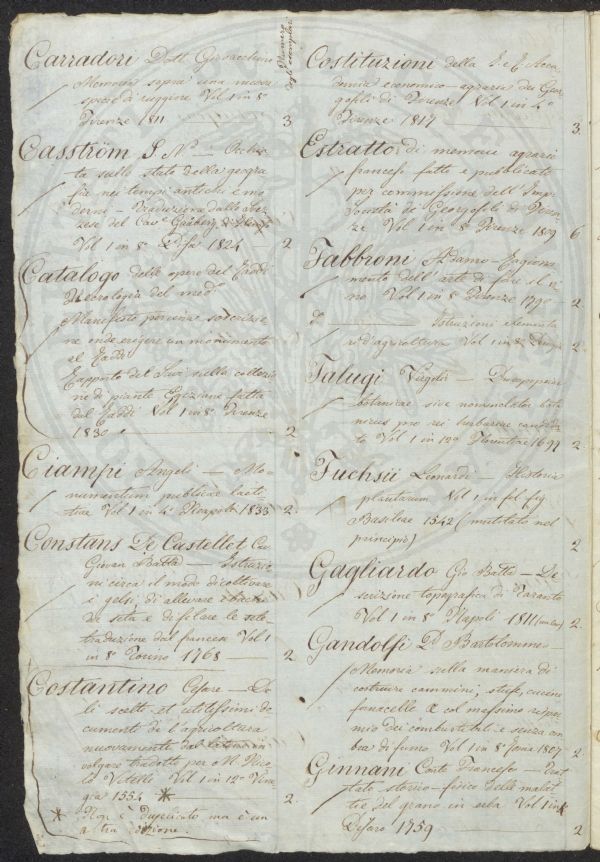 Numero
degli esemplari
Carradori Dott. Gioacchino
Memoria sopra una nuova
specie di ruggine Vol 1 in 8°
Firenze 1811 3
Casström S. N. — Occhia-
ta sullo stato della geogra-
fia nei tempi antichi e mo-
derni — Traduzione dallo Sve-
zese del Cav.
Vol 1 in 8° 1824 — 2
Catalogo delle opere del Raddi
Necrologia del med°
Manifesto per una soscrizio-
ne onde erigere un monumento
al Raddi
Rapporto del Savi sulla collezio-
ne di piante Egiziane fatta
dal Raddi Vol 1 in 8° Firenze
1830 2
Ciampi Angeli — Mo-
numentum publicae laeti-
tiae Vol 1 in 4° Neapoli 1833 2
Constans De Castellet
Giovan Batta — Istruzio-
ni circa il modo di coltivare
i gelsi, di allevare i bachi
da seta e di filare le sete
traduzione dal francese Vol 1
in 8° Torino 1768 — 2
Costantino Cesare — De
li scelti et utilissimi do
cumenti de l'agricoltura
nuovamente dal latino in
volgare tradotti per M. Nico-
lò Vitello Vol 1 in 12° Vene
gia 1554 * 2
* Non è duplicato ma è un
altra edizione.
Costituzioni della I. e R. Acca
demia economico-agraria dei Geor
gofili di Firenze Vol 1 in 4°
Firenze 1817 3
Estratto di memorie agrarie
francesi fatto e pubblicato
per commissione dell'Imp.
Società di Georgofili di Firen
ze Vol 1 in 8° Firenze 1809 6
Fabbroni Adamo — Ragiona-
mento dell'arte di fare il vi
no Vol 1 in 8° Firenze 1790 — 2
D° — Istruzioni elementa
ri d'agricoltura Vol 1 in 8° 2
Falugi Virgilii —
botanicae sive nomenclator bota
nicus pro rei herbariae
Vol 1 in 12° Florentiae 1697 2
Fuchsii Leonardi — Historia
plantarum Vol 1 in fol fig
Basileae 1542 (mutilato nel
principio) 2
Gagliardo Gio Batta — De
scrizione topografica di Taranto
Vol 1 in 8° Napoli 1811 2
Gandolfi D. Bartolommeo
Memoria sulla maniera di
costruire cammini, stufe, cucine
fornacelle &c col massimo rispar
mio dei combustibili e senza om
bra di fumo Vol 1 in 8° Roma 1807 2
Ginnani Conte Francesco — Trat
tato storico-fisico delle malat
tie del grano in erba Vol 1 in
Pesaro 1759 2